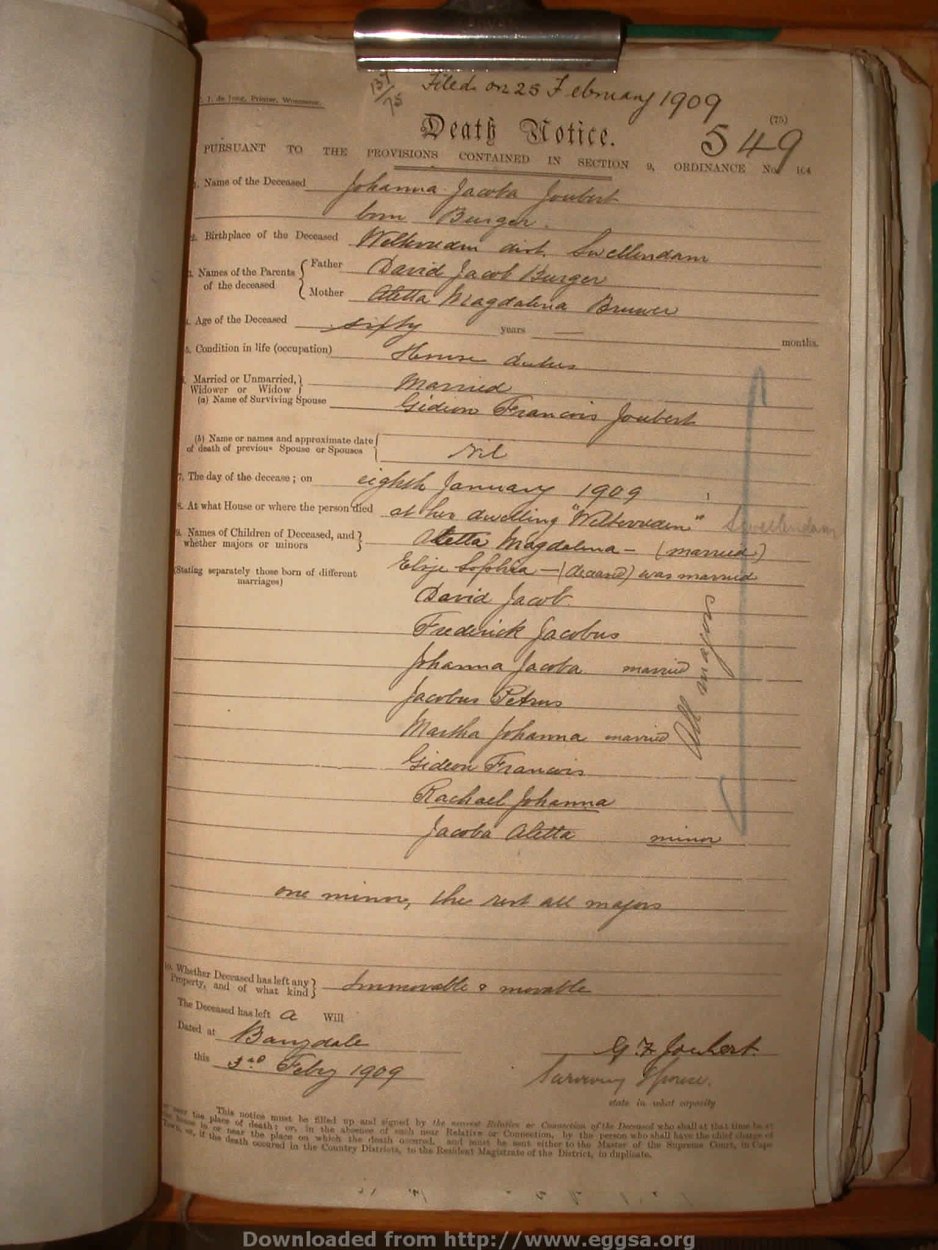 137/75 Filed on 25 February 1909
T. J. de Jong, Printer, Worcester.
(75)
Death Notice. 549
PURSUANT TO THE PROVISIONS CONTAINED IN SECTION 9, ORDINANCE No 104
1. Name of the Deceased Johanna Jacoba Joubert
born Burger.
2. Birthplace of the Deceased Weltevreden dist. Swellendam
3. Names of the Parents of the deceased { Father David Jacob Burger
Mother Aletta Magdalena Bruwer
4. Age of the Deceased years months.
5. Condition in life (occupation) House duties
6. Married or Unmarried, Widower or Widow } Married
(a) Name of Surviving Spouse Gideon Francois Joubert
(b) Name or names and approximate date of death of previous Spouse or Spouses { Nil
7. The day of the decease; on eighth January 1909
8. At what House or where the person died at her dwelling "Weltevreden" Swellendam
9. Names of Children of Deceased, and whether majors or minors } Aletta Magdalena - (married)
(Stating separately those born of different marriages) Sophia - was married
David Jacob
Frederick Jacobus
Johanna Jacoba married
Jacobus Petrus
Martha Johanna married
Gideon Francois
Rachael Johanna
Jacoba Aletta minor
All majors
one minor, the rest all majors
10. Whether Deceased has left any Property, and of what kind } Immovable & movable
The Deceased has left a Will
Dated at Barrydale
this 3rd Feby 1909
G F Joubert
Surviving Spouse.
state in what capacity
This notice must be filled up and signed by the nearest Relative or Connection of the Deceased who shall at that time be at
or near the place of death; or, in the absence of such near Relative or Connection, by the person who shall have the chief charge of
the house in or near the place on which the death occurred, and must be sent either to the Master of the Supreme Court, in Cape
Town, or, if the death occured in the Country Districts, to the Resident Magistrate of the District, in duplicate.
Downloaded from http://www.eggsa.org